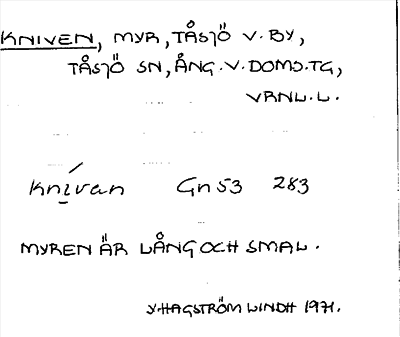 KNIVEN, MYR, TÅSJÖ V. BY,
TÅSJÖ SN, ÅNG. V. DOMS.TG,
VRNL. L.
knívan Gn 53 283
MYREN ÄR LÅNG OCH SMAL.
Y. HAGSTRÖM LINDH 1971.